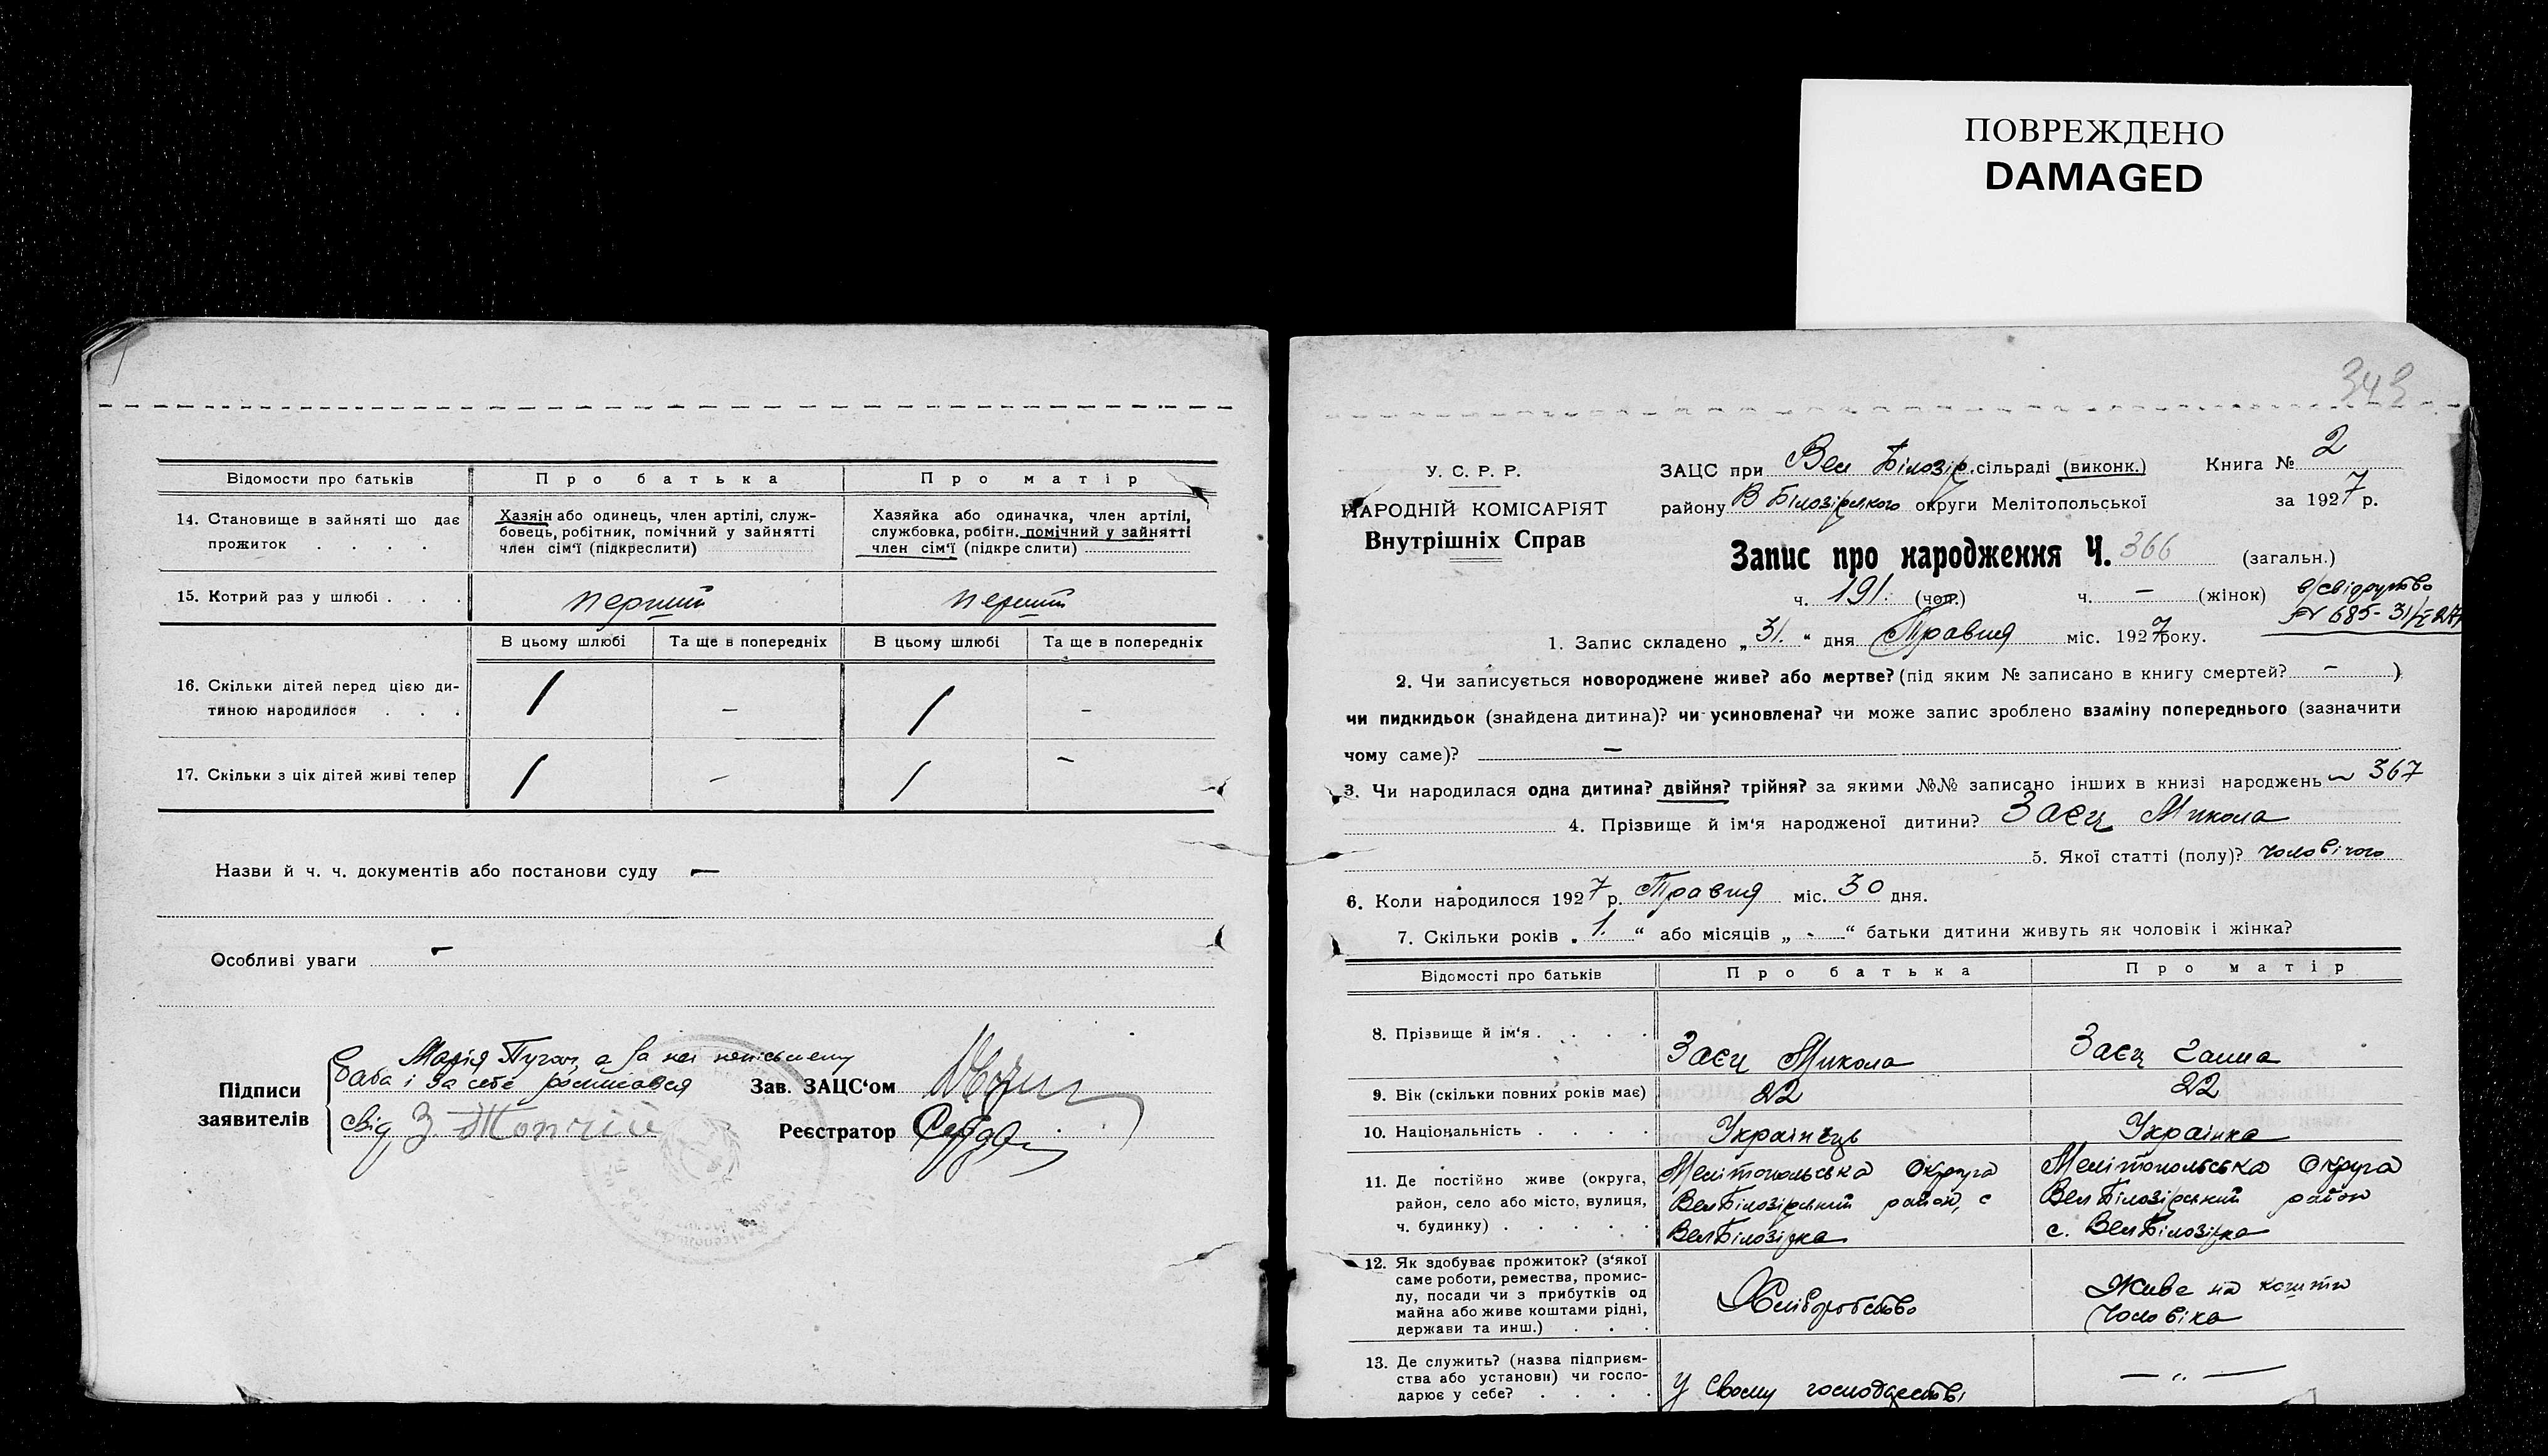 ПОВРЕЖДЕНО
DAMAGED
Відомости про батьків
Про батька
Про матір
14. Становище в зайняті що дає
прожиток . . . .
Хазяін або одинець, член артілі, служ-
бовець, робітник, помічний у зайнятті
член сім'ї (підкреслити)
Хазяйка або одиначка, член артілі,
службовка, робітн. помічний у зайнятті
член сім'ї (підкреслити)
15. Котрий раз у шлюбі . . .
перший
перший
В цьому шлюбі
Та ще в попередніх
В цьому шлюбі
Та ще в попередніх
16. Скільки дітей перед цією ди-
тиною народилося . . .
/ – / –
17. Скільки з ціх дітей живі тепер
/ – / –
Назви й ч. ч. документів або постанови суду —
Особливі уваги –
Підписи
заявителів
Марія Пугач, а за неї неписьмену
баба і за себе росписався
свід З
Зав. ЗАЦС'ом
Реєстратор
343
У. С. Р. Р.
НАРОДНІЙ КОМІСАРІЯТ
Внутрішніх Справ
ЗАЦС при Вел Білозір. сільраді (виконк.) Книга № 2
району В Білозірського округи Мелітопольської за 1927 р.
Запис про народження Ч. 366 (загальн.)
ч. 191. (чол.) ч. – (жінок)
в/свідоцтво
№ 685-31/
1. Запис складено „31.“ дня Травня міс. 1927 року.
2. Чи записується новороджене живе? або мертве? (під яким № записано в книгу смертей? – )
чи пидкидьок (знайдена дитина)? чи усиновлена? чи може запис зроблено взаміну попереднього (зазначити
чому саме)? –
3. Чи народилася одна дитина? двійня? трійня? за якими №№ записано інших в книзі народжень ~ 367
4. Прізвище й ім'я народженої дитини? Заєц Микола
5. Якої статті (полу)? чоловічого
6. Коли народилося 1927 р. Травня міс. 30 дня.
7. Скільки років „1.“ або місяців „-“ батьки дитини живуть як чоловік і жінка?
Відомості про батьків
Про батька
Про матір
8. Прізвище й ім'я . . . .
Заєц Микола
Заєц Ганна
9. Вік (скільки повних років має)
22
22
10. Національність . . . .
Українець
Українка
11. Де постійно живе (округа,
район, село або місто, вулиця,
ч. будинку) . . . . .
Мелітопольська Округа
Вел Білозірський район, с
Вел Білозірка
Мелітопольська Округа
Вел Білозірський район
с. Вел Білозірка
12. Як здобуває прожиток? (з'якої
саме роботи, ремества, промис-
лу, посади чи з прибутків од
майна або живе коштами рідні,
держави та инш.) . . .
Хліборобство
Живе на кошти
чоловіка
13. Де служить? (назва підприєм-
ства або установи) чи госпо-
дарює у себе? . . . .
у свому господарстві
— „ —